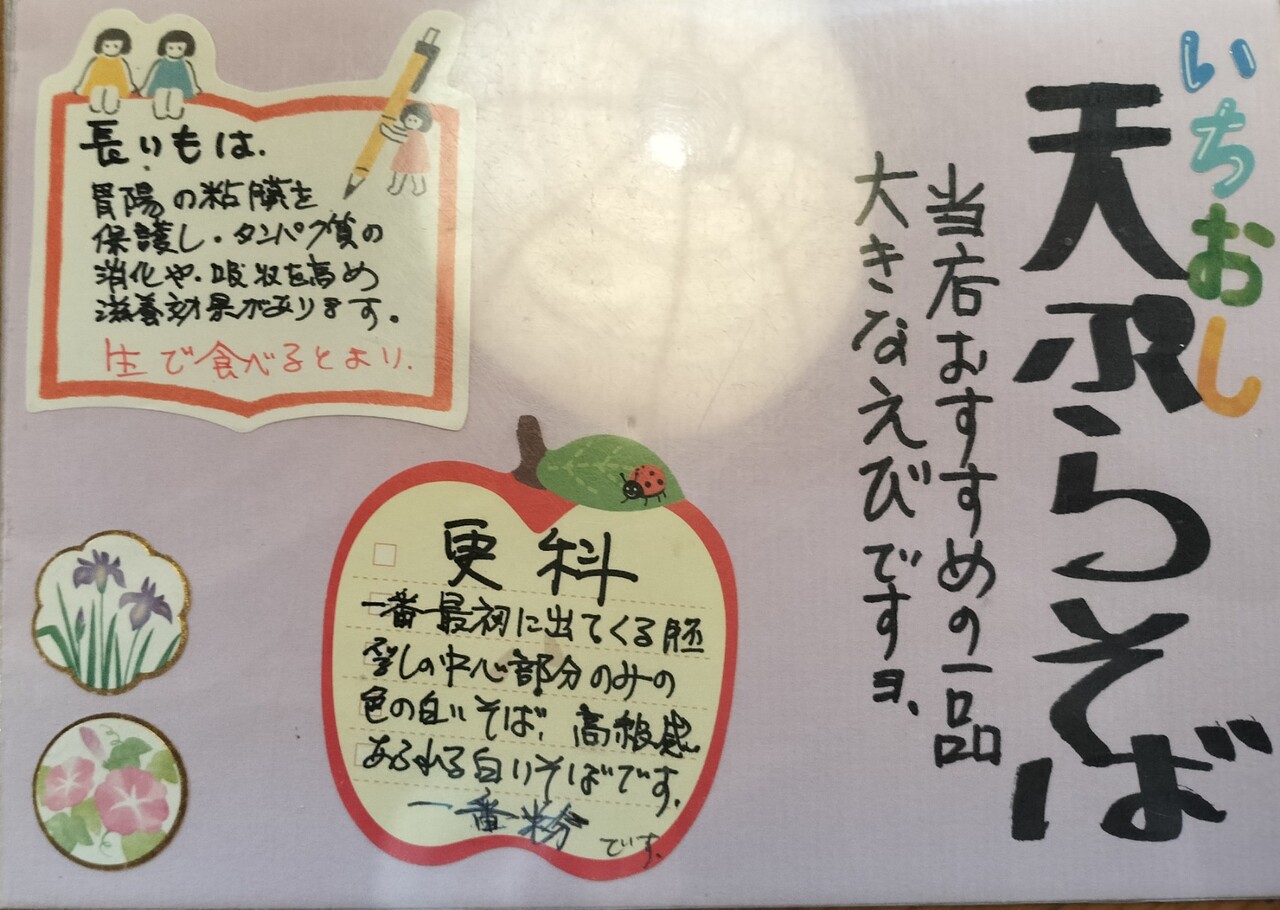 いちおし
天ぷらそば
当店おすすめの一品
大きなえびですヨ、
長いもは.
胃腸の粘膜を
保護し・タンパク質の
消化や・吸収を高め
滋養効果があります。
生で食べるとより.
更科
一番最初に出てくる胚
乳の中心部分のみの
色の白いそば、高級感
あふれる白いそばです.
一番粉です.